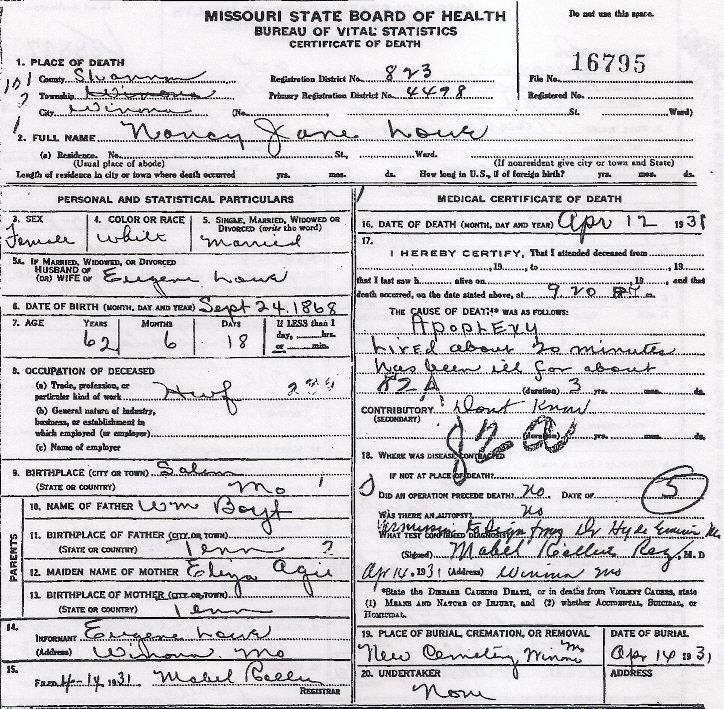 MISSOURI STATE BOARD OF HEALTH
BUREAU OF VITAL STATISTICS
CERTIFICATE OF DEATH
Do not use this space.
1. PLACE OF DEATH
County Shannon Registration District No. 823 File No. 16795
Township Winona Primary Registration District No. 4498 Registered No.
City Winona (No. St. Ward)
2. FULL NAME Nancy Jane
(a) Residence. No. St., Ward.
(Usual place of abode) (If nonresident give city or town and State)
Length of residence in city or town where death occurred yrs. mos. ds. How long in U.S., if of foreign birth? yrs. mos. ds.
PERSONAL AND STATISTICAL PARTICULARS
3. SEX
Female
4. COLOR OR RACE
White
5. SINGLE, MARRIED, WIDOWED OR DIVORCED (write the word)
Married
5a. IF MARRIED, WIDOWED, OR DIVORCED
HUSBAND OF
(OR) WIFE OF Eugene
6. DATE OF BIRTH (MONTH, DAY AND YEAR) Sept 24. 1868
7. AGE YEARS MONTHS DAYS If LESS than 1 day, hrs. or min.
62 6 18
8. OCCUPATION OF DECEASED
(a) Trade, profession, or
particular kind of work Hwf
(b) General nature of industry,
business, or establishment in
which employed (or employer)
(c) Name of employer
9. BIRTHPLACE (CITY OR TOWN) Salem
(STATE OR COUNTRY) Mo
PARENTS
10. NAME OF FATHER Wm
11. BIRTHPLACE OF FATHER (CITY OR TOWN)
(STATE OR COUNTRY) Tenn
12. MAIDEN NAME OF MOTHER Eliza Agee
13. BIRTHPLACE OF MOTHER (CITY OR TOWN)
(STATE OR COUNTRY) Tenn
14.
INFORMANT Eugene
(Address) Winona Mo
15.
FILED 4-14 1931 Mabel
REGISTRAR
MEDICAL CERTIFICATE OF DEATH
16. DATE OF DEATH (MONTH, DAY AND YEAR) Apr 12 1931
17.
I HEREBY CERTIFY, That I attended deceased from
, 19 , to , 19
that I last saw h alive on , 19 , and that
death occurred, on the date stated above, at 9 20 m.
THE CAUSE OF DEATH* WAS AS FOLLOWS:
Apoplexy
Lived about 20 minutes
has been ill for about
82 A (duration) 3 yrs. mos. ds.
CONTRIBUTORY Dont Know
(SECONDARY)
82a (duration) yrs. mos. ds.
18. WHERE WAS DISEASE CONTRACTED
IF NOT AT PLACE OF DEATH?
DID AN OPERATION PRECEDE DEATH? No DATE OF 5
WAS THERE AN AUTOPSY? No
WHAT TEST CONFIRMED DIAGNOSIS? Dr Hyde
(Signed) Mabel Reg, M.D
Apr 14, 1931 (Address) Winona Mo
*State the DISEASE CAUSING DEATH, or in deaths from VIOLENT CAUSES, state
(1) MEANS AND NATURE OF INJURY, and (2) whether ACCIDENTAL, SUICIDAL, or
HOMICIDAL.
19. PLACE OF BURIAL, CREMATION, OR REMOVAL
New Cemetery Winona Mo
DATE OF BURIAL
Apr 14 1931
20. UNDERTAKER
None
ADDRESS